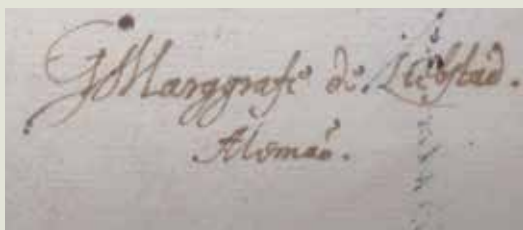 GMarggrafe de Liebstad.
Alemaõ.